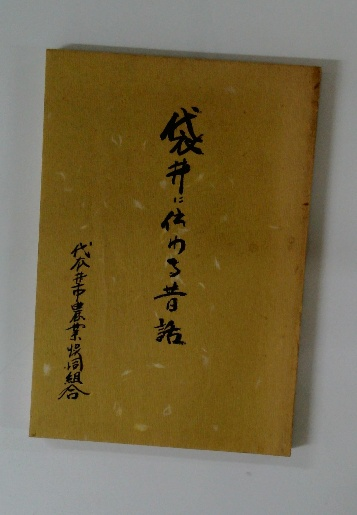 袋井に伝わる昔話
袋井市農業協同組合